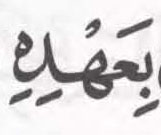 بِعَهْدِهِ